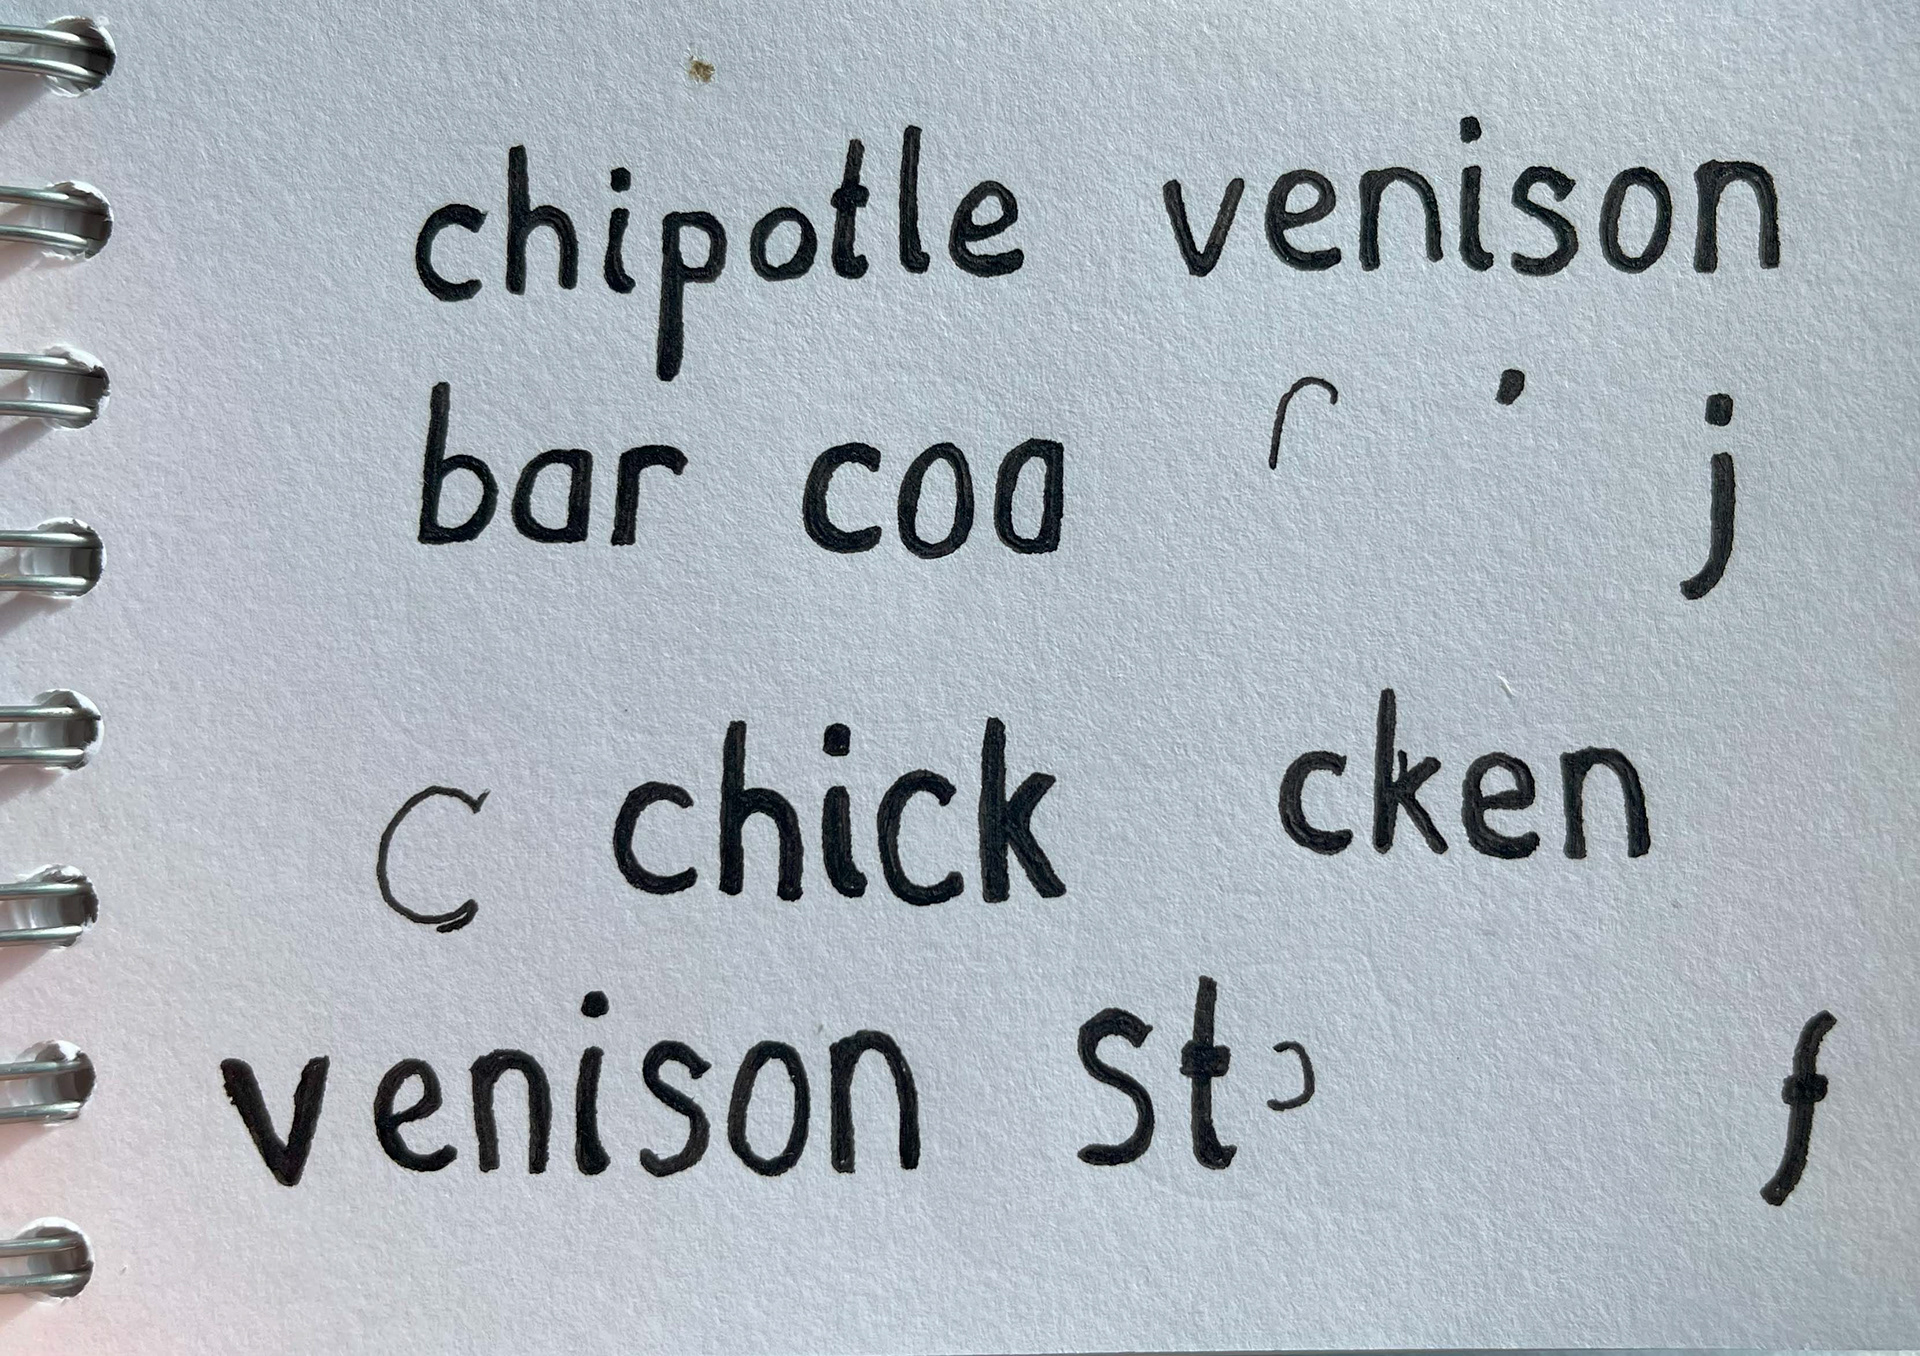 chipotle venison
bar coa j
c chick cken
venison st f